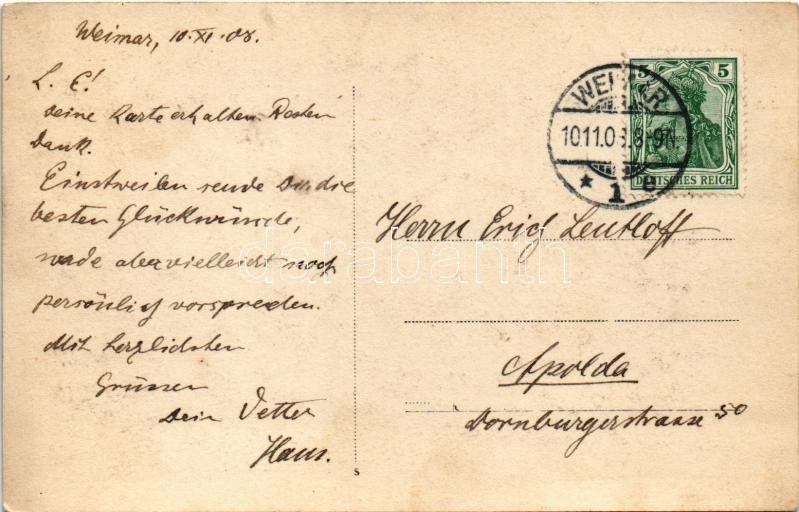 Weimar, 10.XI.08.
L. E!
deine Karte erhalten. Besten
Dank.
Einstweilen sende Dir die
besten Glückwünsche,
werde aber vielleicht noch
persönlich vorsprechen.
Mit herzlichsten
Grüssen
Dein Vetter
Hans.
5 5
DEUTSCHES REICH
WEIMAR
10.11.08.8-9N.
* 1 e
Herrn Erich Leutloff
Apolda
Dornburgerstrasse 50
darabanth
s